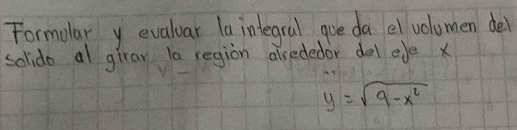 Formular y evaluar la integral que da el volumen del
solido al girar la región alrededor del eje x
y = √9-x²